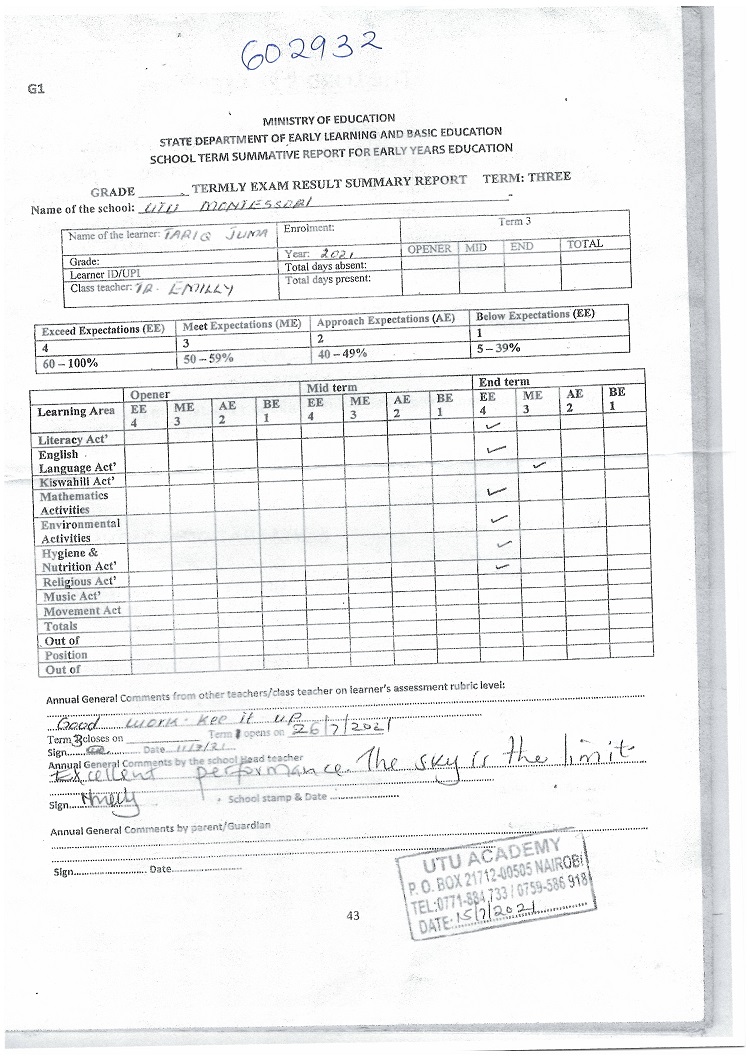 602932
G1
MINISTRY OF EDUCATION
STATE DEPARTMENT OF EARLY LEARNING AND BASIC EDUCATION
SCHOOL TERM SUMMATIVE REPORT FOR EARLY YEARS EDUCATION
GRADE ______ TERMLY EXAM RESULT SUMMARY REPORT TERM: THREE
Name of the school: UTU MONTESSORI
Name of the learner: TARIQ JUMA Enrolment: Term 3
Grade: Year: 2021 OPENER MID END TOTAL
Learner ID/UPI Total days absent:
Class teacher: TR. EMILLY Total days present:
Exceed Expectations (EE) Meet Expectations (ME) Approach Expectations (AE) Below Expectations (EE)
4 3 2 1
60 – 100% 50 – 59% 40 – 49% 5 – 39%
Opener Mid term End term
Learning Area EE ME AE BE EE ME AE BE EE ME AE BE
4 3 2 1 4 3 2 1 4 3 2 1
Literacy Act'
English
Language Act'
Kiswahili Act'
Mathematics
Activities
Environmental
Activities
Hygiene &
Nutrition Act'
Religious Act'
Music Act'
Movement Act
Totals
Out of
Position
Out of
Annual General Comments from other teachers/class teacher on learner's assessment rubric level:
Good work. Kee it up
Term 3 closes on Term opens on 26/7/2021
Sign Date
Annual General Comments by the school Head teacher
Excellent performance. The sky is the limit
Sign School stamp & Date
Annual General Comments by parent/Guardian
Sign Date
UTU ACADEMY
P. O. BOX 21712-00505 NAIROBI
TEL:0771-884,733 / 0759-586 918
DATE: 15/7/2021
43